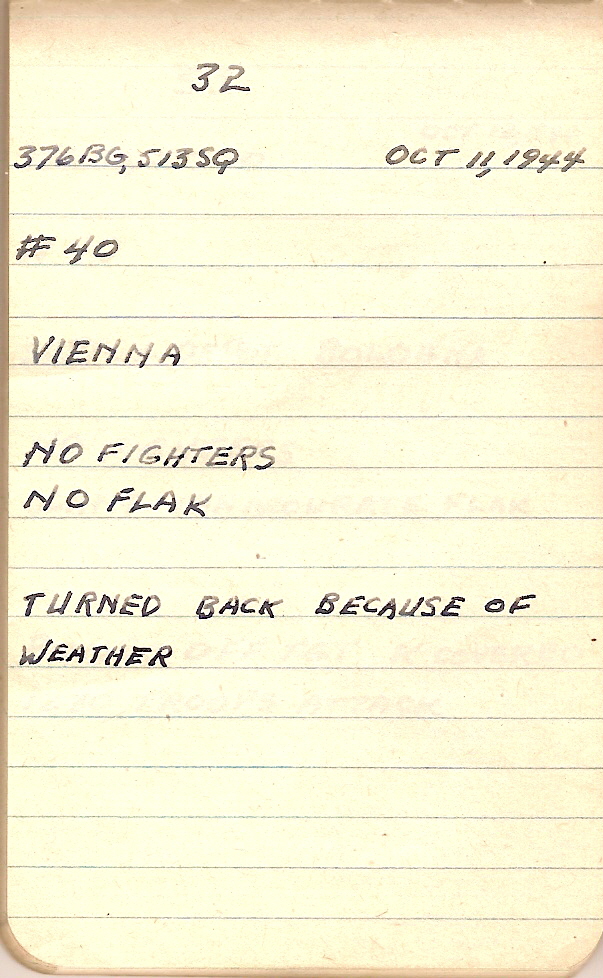 32
376BG, 513SQ OCT 11, 1944
# 40
VIENNA
NO FIGHTERS
NO FLAK
TURNED BACK BECAUSE OF
WEATHER